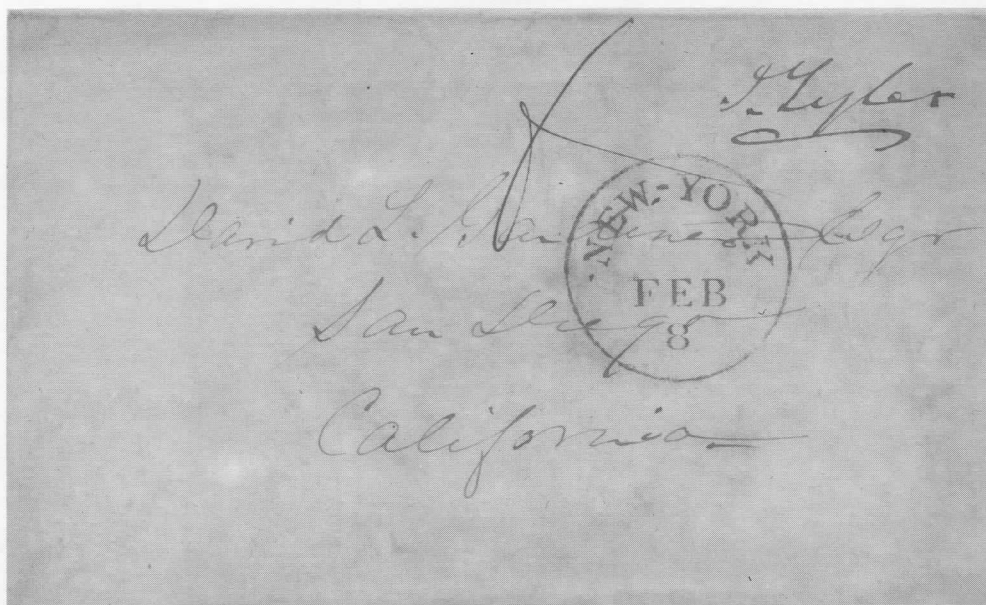 J. Tyler
David L. Gardiner Esqr
San Diego
California
NEW-YORK
FEB
8